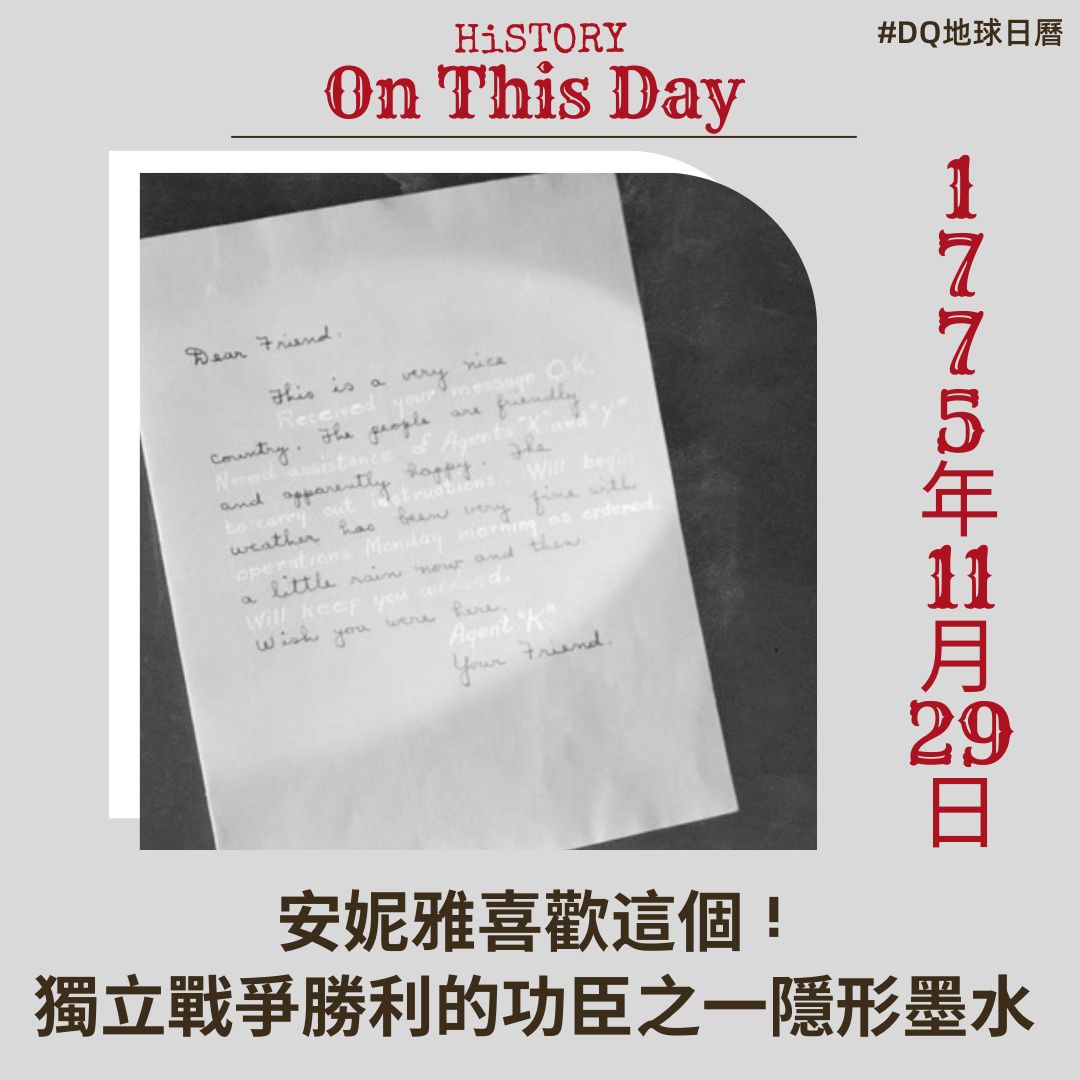 #DQ地球日曆
HiSTORY
On This Day
1775年11月29日
Dear Friend:
This is a very nice
Received your message O.K.
country. The people are friendly
Need assistance of Agents "X" and "Y"
and apparently happy. The
to carry out instructions. Will begin
weather has been very fine with
operations Monday morning as ordered.
a little rain now and then.
Will keep you advised.
Wish you were here.
Agent "K"
Your Friend.
安妮雅喜歡這個！
獨立戰爭勝利的功臣之一隱形墨水